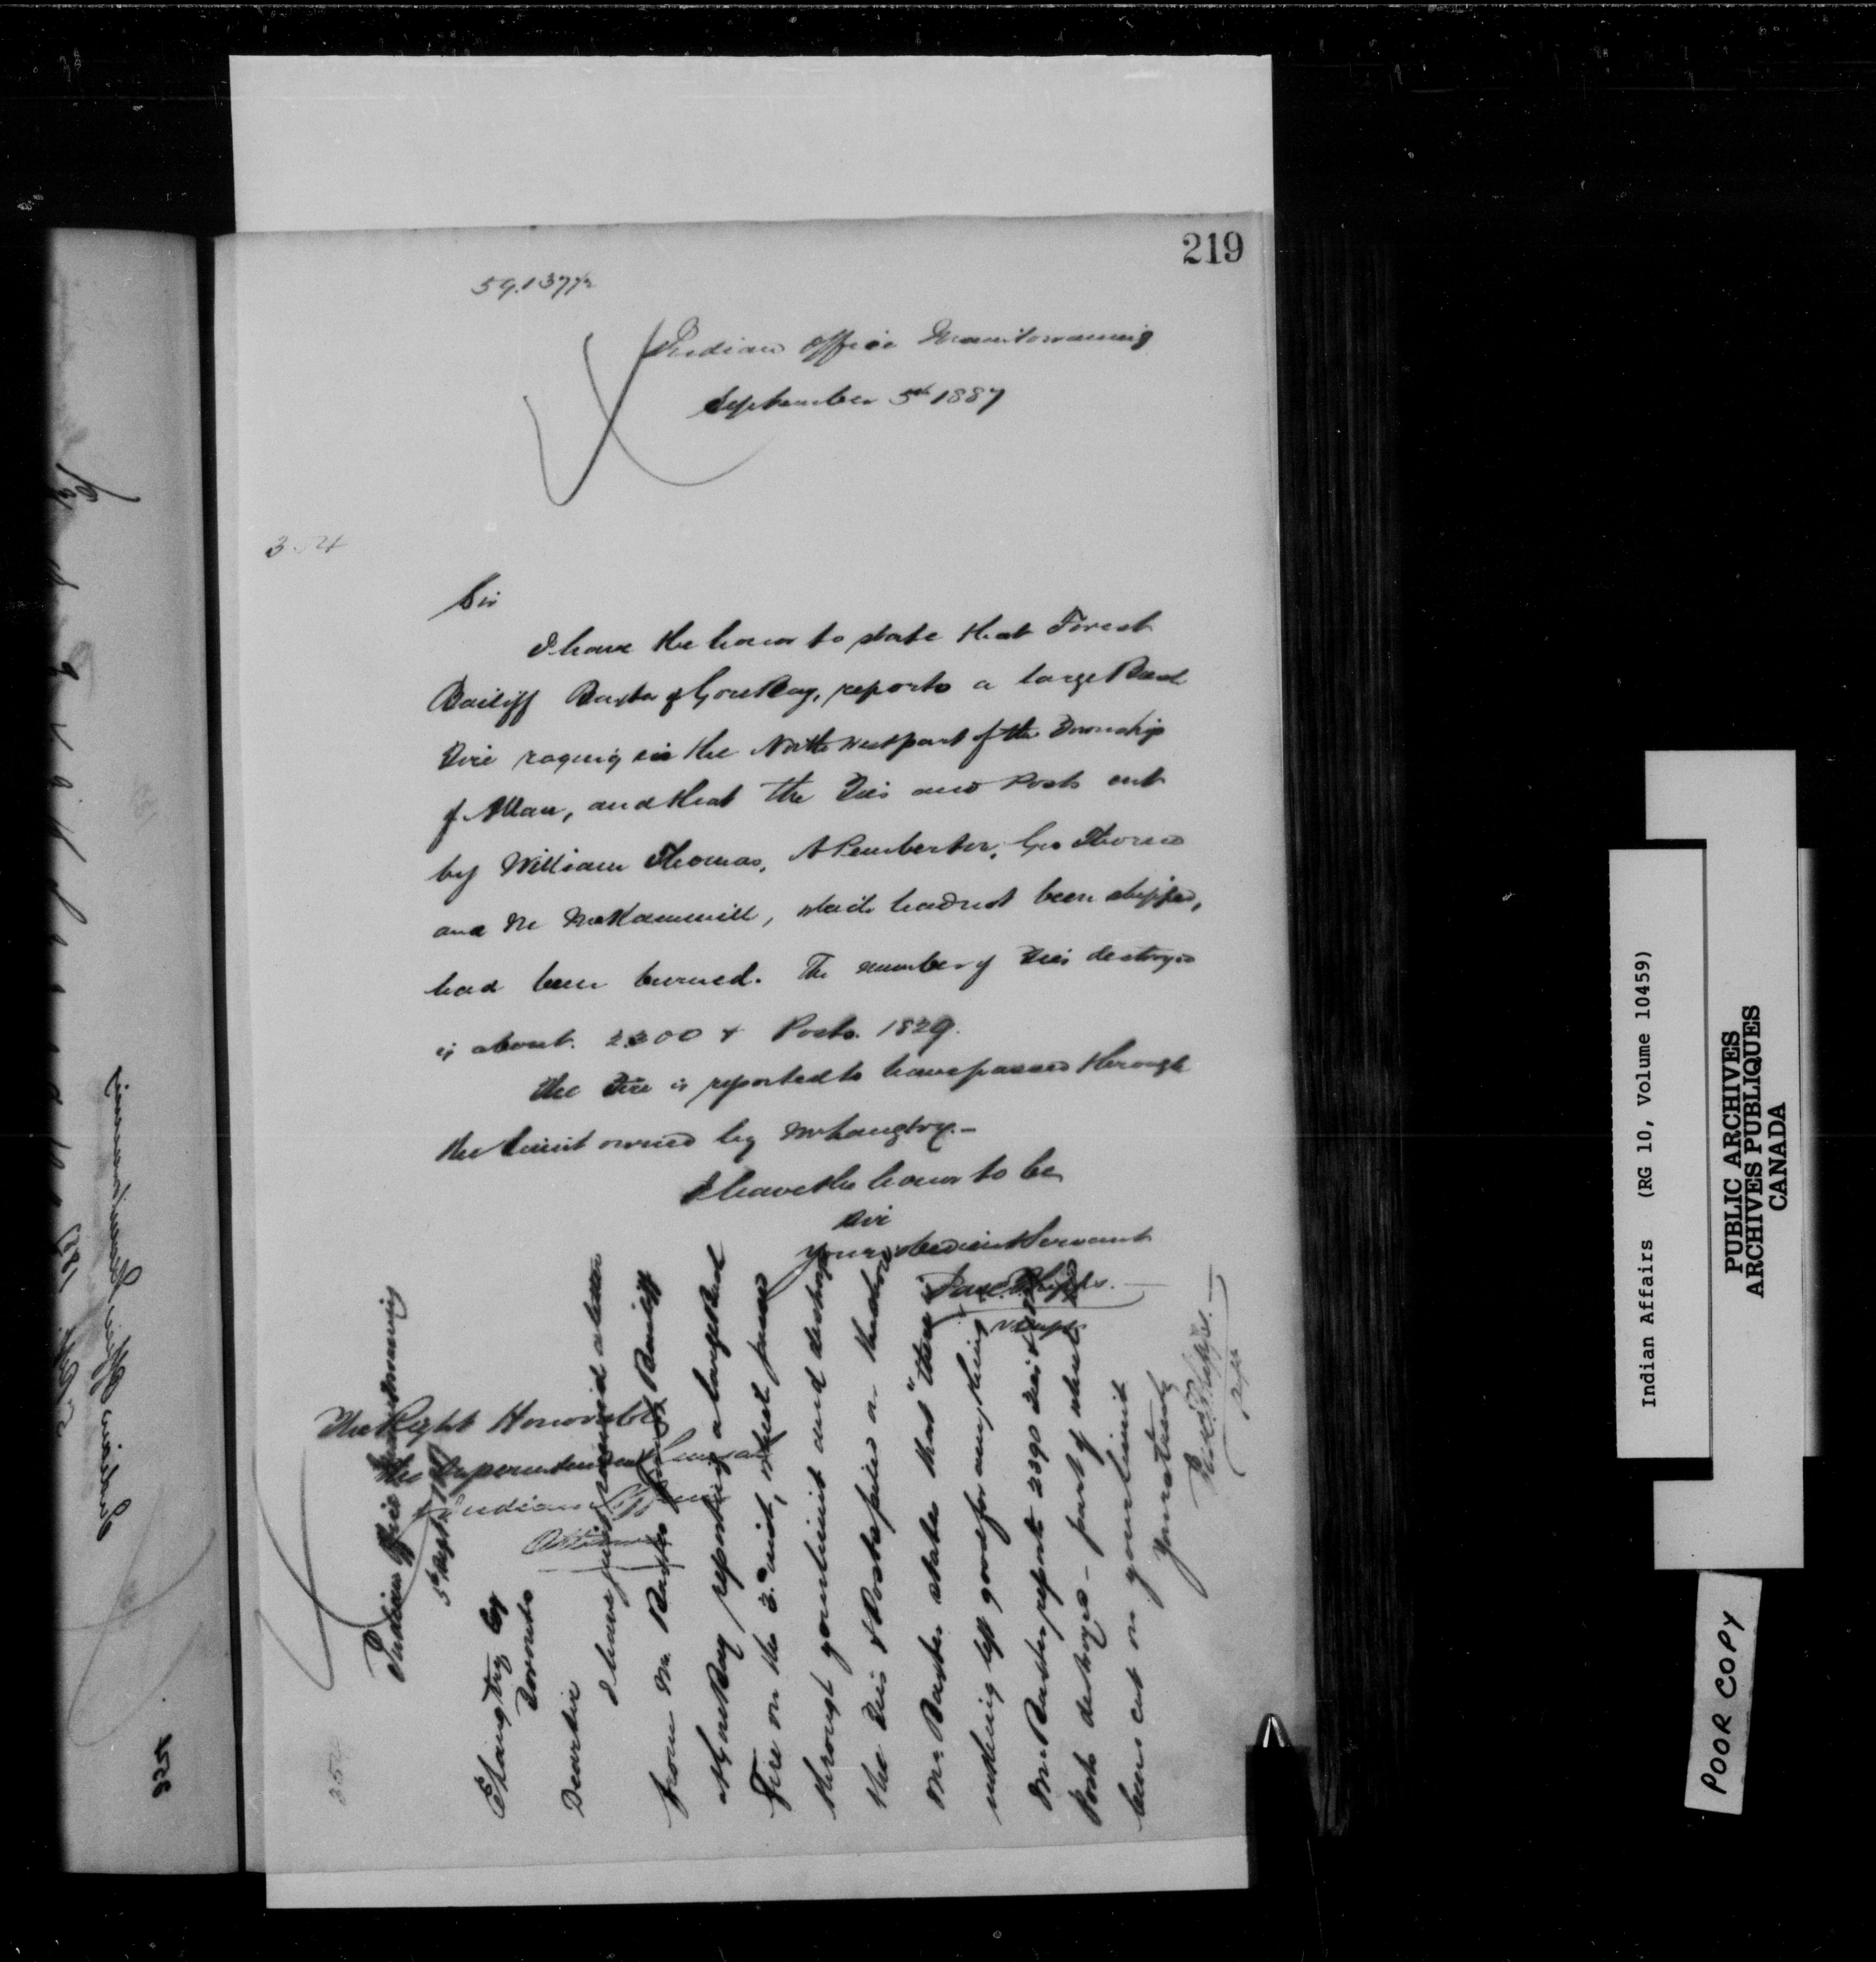 219
59.137½
Indian Office Manitowaning
September 5th 1887
354
Sir
I have the honor to state that Forest
Bailiff Baxter of Gore Bay, reports a large Bush
Fire raging in the North West part of the Township
of Allan, and that the Ties and Posts cut
by William Thomas, A Pemberton, Geo Thomas
and Mr, which had not been shipped,
had been burned. The number of Ties destroyed
is about 2300 & Posts 1829.
The Fire is reported to have passed through
the limit owned by Mr Langtry.–
I have the honor to be
Sir
Your obedient Servant
Jas. C. Phipps.
V. Supt
The Right Honorable
The Superintendent General
of Indian Affairs
Ottawa
Indian Office Manitowaning
5th Sept 1887
E Langtry Esq
Toronto
Dear Sir
I have just received a letter
from Mr Baxter Forest Bailiff
at Gore Bay reporting a large Bush
Fire on the 3rd inst, which passed
through your limit and destroyed
the Ties & Posts piled on the shore
Mr Baxter states that "there is
nothing left good for anything"
Mr Baxter reports 2390 Ties & 1829
Posts destroyed – part of which had
been cut on your limit
Yours truly
Jas. C. Phipps.
V. Supt
354
Indian Office Manitowaning
5 Sept. 1887
Indian Affairs (RG 10, Volume 10459)
PUBLIC ARCHIVES
ARCHIVES PUBLIQUES
CANADA
POOR COPY